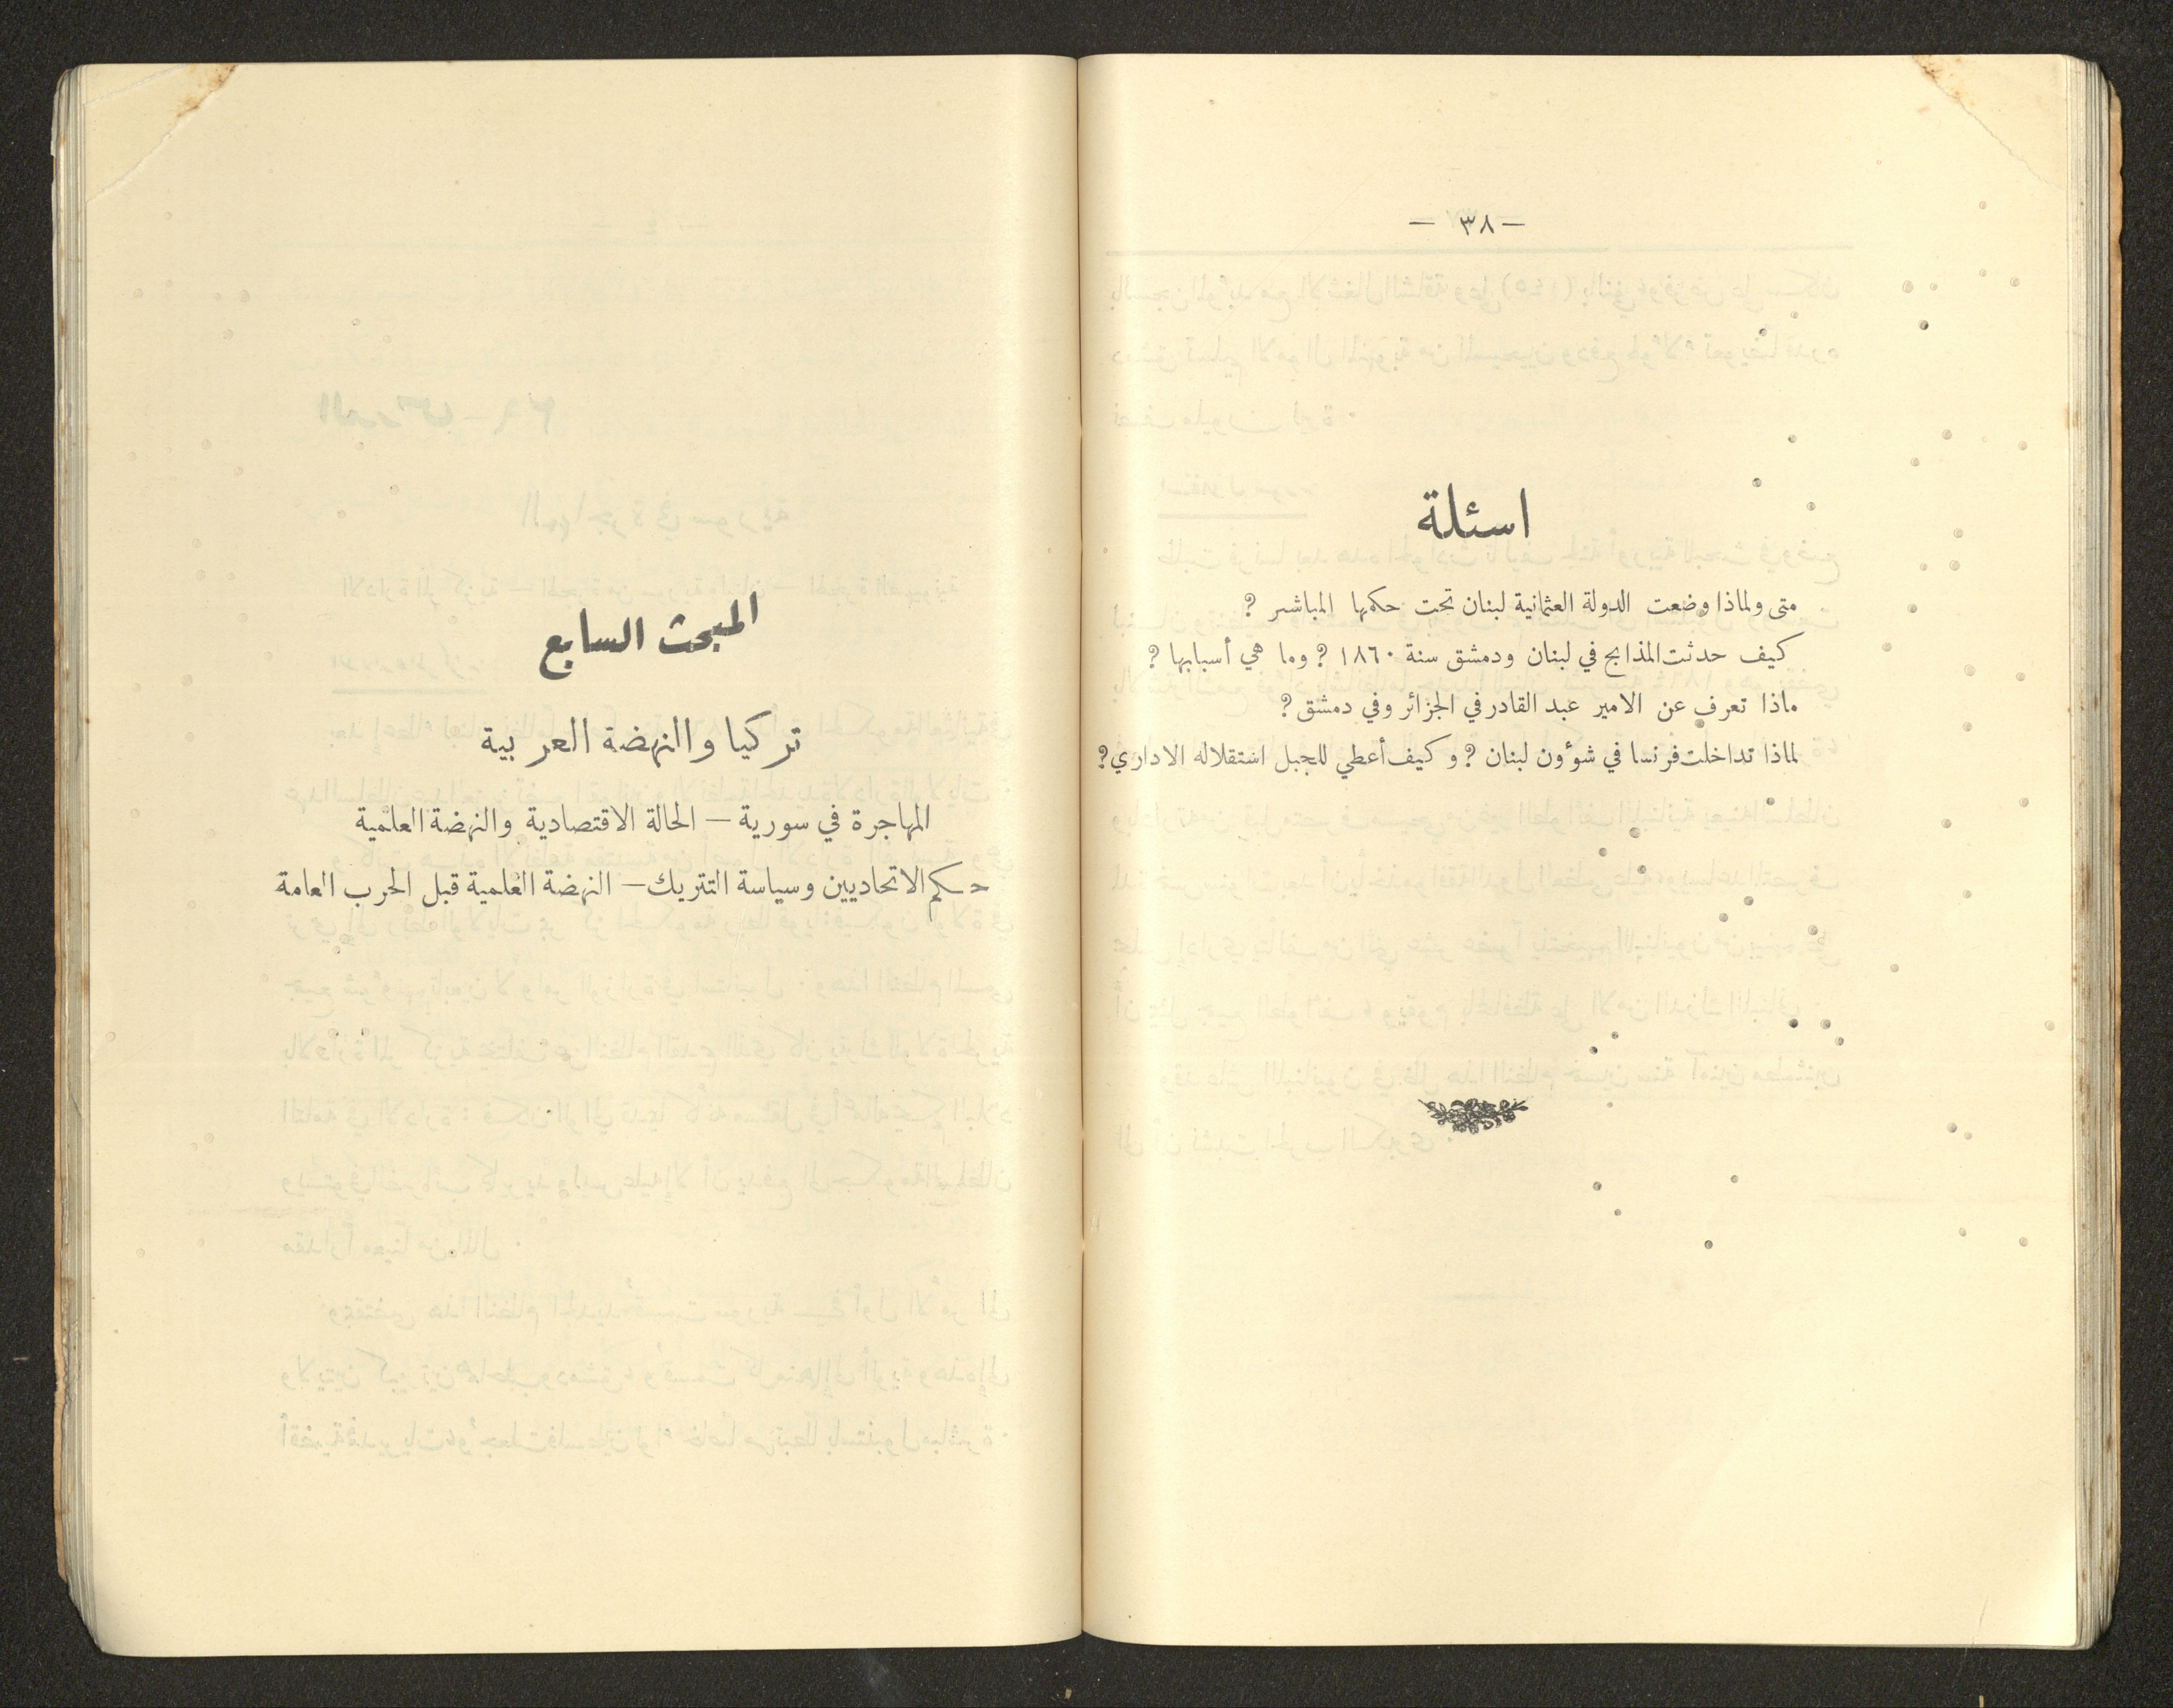 — ٣٨ —
اسئلة
متى ولماذا وضعت الدولة العثمانية لبنان تحت حكمها المباشر ؟
كيف حدثت المذابح في لبنان ودمشق سنة ١٨٦٠ ؟ وما هي أسبابها ؟
ماذا تعرف عن الامير عبد القادر في الجزائر وفي دمشق ؟
لماذا تداخلت فرنسا في شؤون لبنان ؟ وكيف أعطي للجبل استقلاله الاداري ؟
المبحث السابع
تركيا والنهضة العربية
المهاجرة في سورية — الحالة الاقتصادية والنهضة العلمية
حكم الاتحاديين وسياسة التتريك — النهضة العلمية قبل الحرب العامة